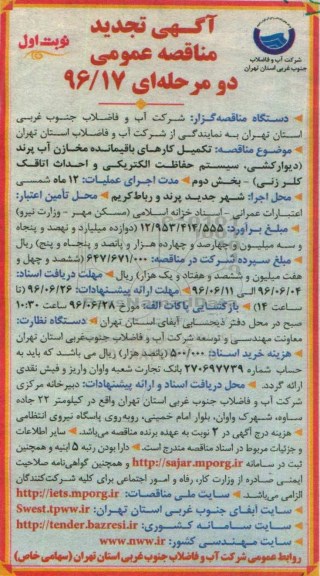 آگهی تجدید
مناقصه عمومی
دو مرحله‌ای ۹۶/۱۷
نوبت اول
شرکت آب و فاضلاب
جنوب غربی استان تهران
دستگاه مناقصه‌گزار: شرکت آب و فاضلاب جنوب غربی
استان تهران به نمایندگی از شرکت آب و فاضلاب استان تهران
موضوع مناقصه: تکمیل کارهای باقیمانده مخازن آب پرند
(دیوارکشی، سیستم حفاظت الکتریکی و احداث اتاقک
کلر زنی) - بخش دوم مدت اجرای عملیات: ۱۲ ماه شمسی
محل اجرا: شهر جدید پرند و رباط‌کریم محل تأمین اعتبار:
اعتبارات عمرانی - اسناد خزانه اسلامی (مسکن مهر - وزارت نیرو)
مبلغ برآورد: ۱۲/۹۵۳/۴۱۴/۵۵۵ (دوازده میلیارد و نهصد و پنجاه
و سه میلیون و چهارصد و چهارده هزار و پانصد و پنجاه و پنج) ریال
مبلغ سپرده شرکت در مناقصه: ۶۴۷/۶۷۱/۰۰۰ (ششصد و چهل و
هفت میلیون و ششصد و هفتاد و یک هزار) ریال مهلت دریافت اسناد:
۹۶/۰۶/۰۴ الی ۹۶/۰۶/۱۱ مهلت ارائه پیشنهادات: ۹۶/۰۶/۲۶ (تا
ساعت ۱۴) بازگشایی پاکات الف: مورخ ۹۶/۰۶/۲۸ ساعت ۱۰:۳۰
صبح در محل دفتر ذیحسابی آبفای استان تهران دستگاه نظارت:
معاونت مهندسی و توسعه شرکت آب و فاضلاب جنوب‌غربی استان تهران
هزینه خرید اسناد: ۵۰۰/۰۰۰ (پانصد هزار) ریال می باشد که باید به
حساب شماره ۲۷۰۶۹۷۷۳۹ بانک تجارت شعبه واوان واریز و فیش نقدی
ارائه گردد. محل دریافت اسناد و ارائه پیشنهادات: دبیرخانه مرکزی
شرکت آب و فاضلاب جنوب غربی استان تهران واقع در کیلومتر ۲۲ جاده
ساوه، شهرک واوان، بلوار امام خمینی، روبه‌روی پاسگاه نیروی انتظامی
هزینه درج آگهی در ۲ نوبت به عهده برنده مناقصه می‌باشد. سایر اطلاعات
و جزئیات مربوط در اسناد مناقصه مندرج است. دارا بودن رتبه ۵ ابنیه و همچنین
ثبت در سامانه http://sajar.mporg.ir و همچنین گواهی‌نامه صلاحیت
ایمنی صادره از وزارت کار، رفاه و امور اجتماعی برای کلیه شرکت‌کنندگان
الزامی می‌باشد. سایت ملی مناقصات: http://iets.mporg.ir
سایت آبفای جنوب غربی استان تهران: Swest.tpww.ir
سایت سامانه کشوری: http://tender.bazresi.ir
سایت مهندسی کشور: www.nww.ir
روابط عمومی شرکت آب و فاضلاب جنوب غربی استان تهران (سهامی خاص)